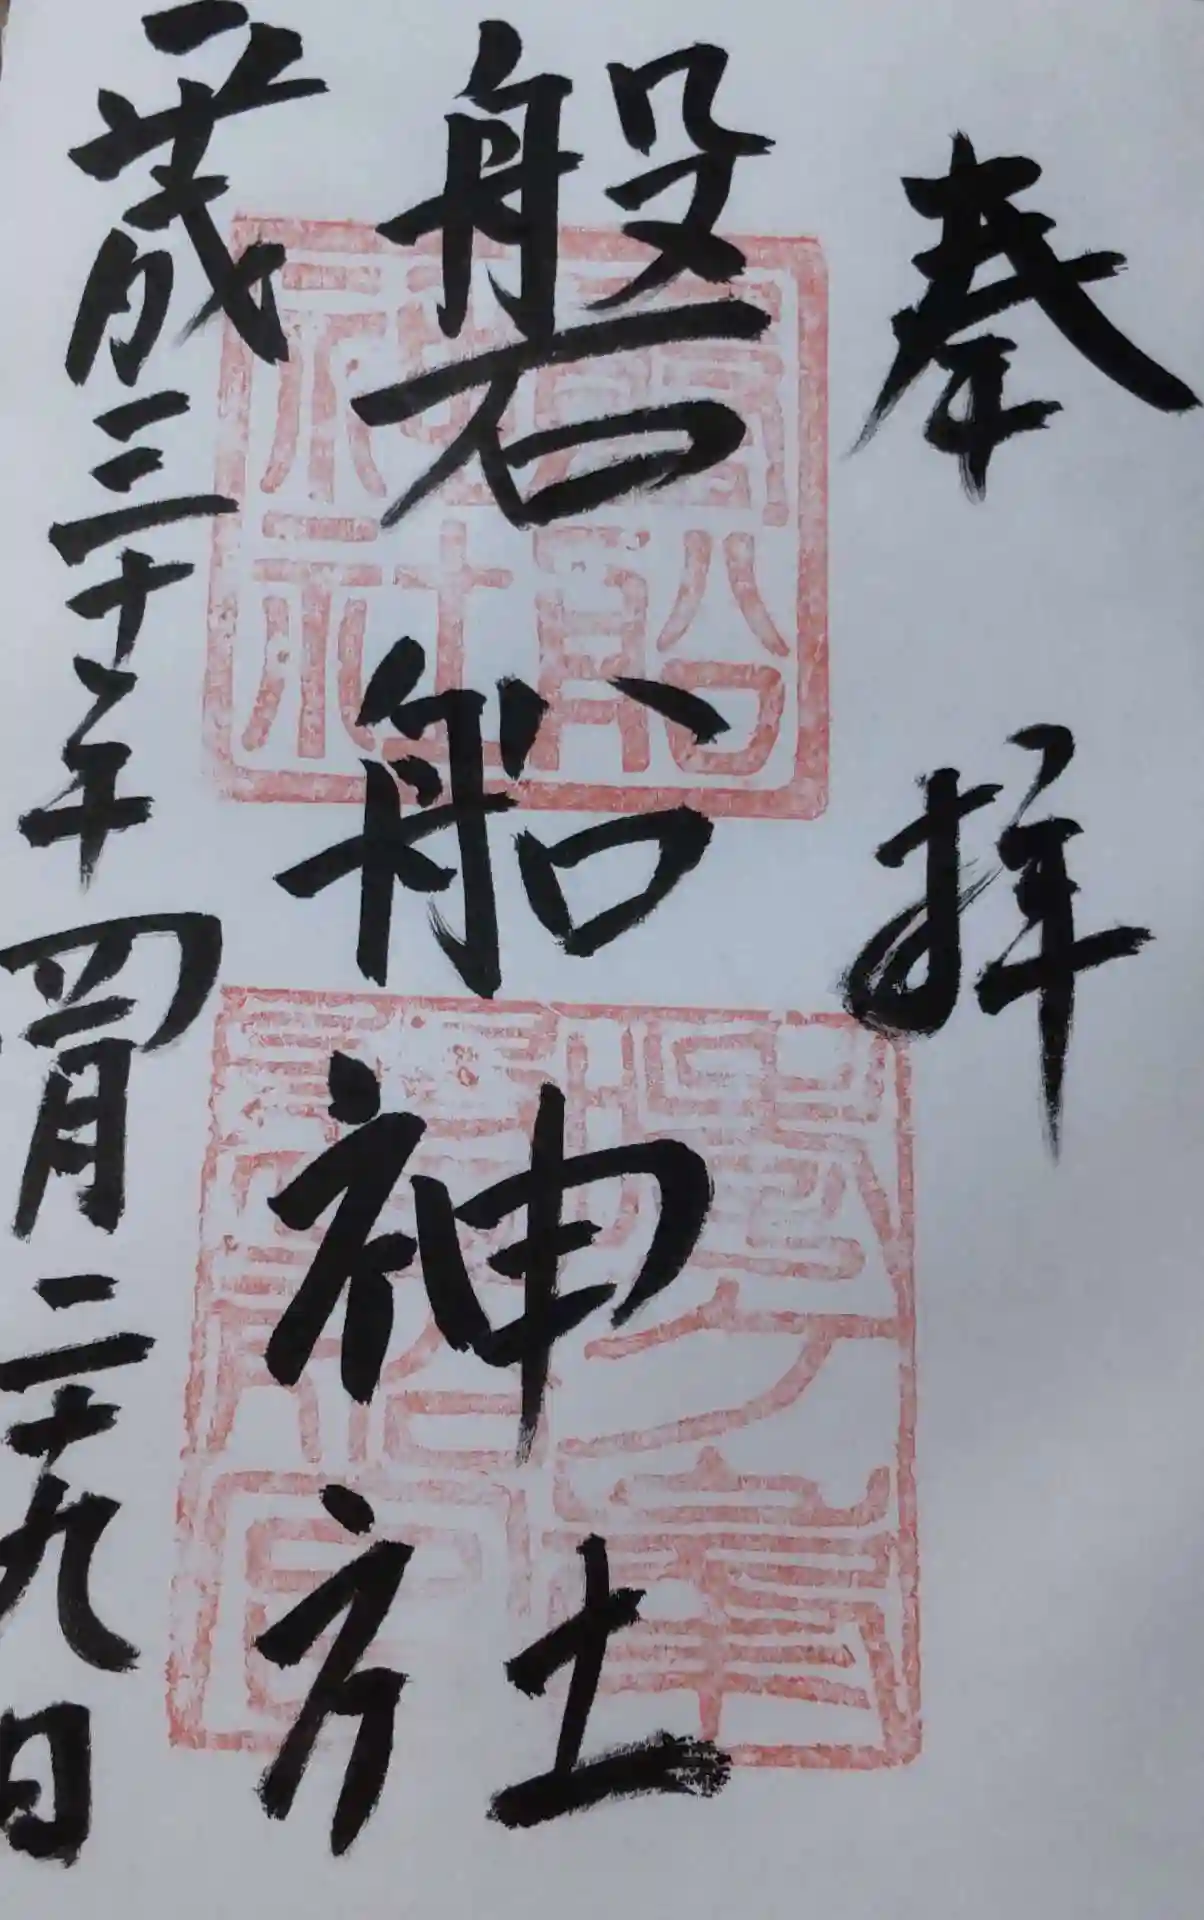 奉拝
磐船神社
平成三十年四月二十九日
磐船
神社